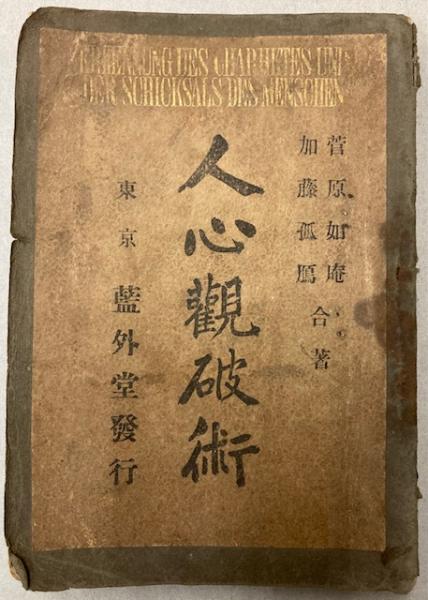 ERKENNUNG DES UND
DER SCHICKSALS DES MENSCHEN
菅原如庵
加藤孤鴈
合著
人心觀破術
東京 藍外堂發行